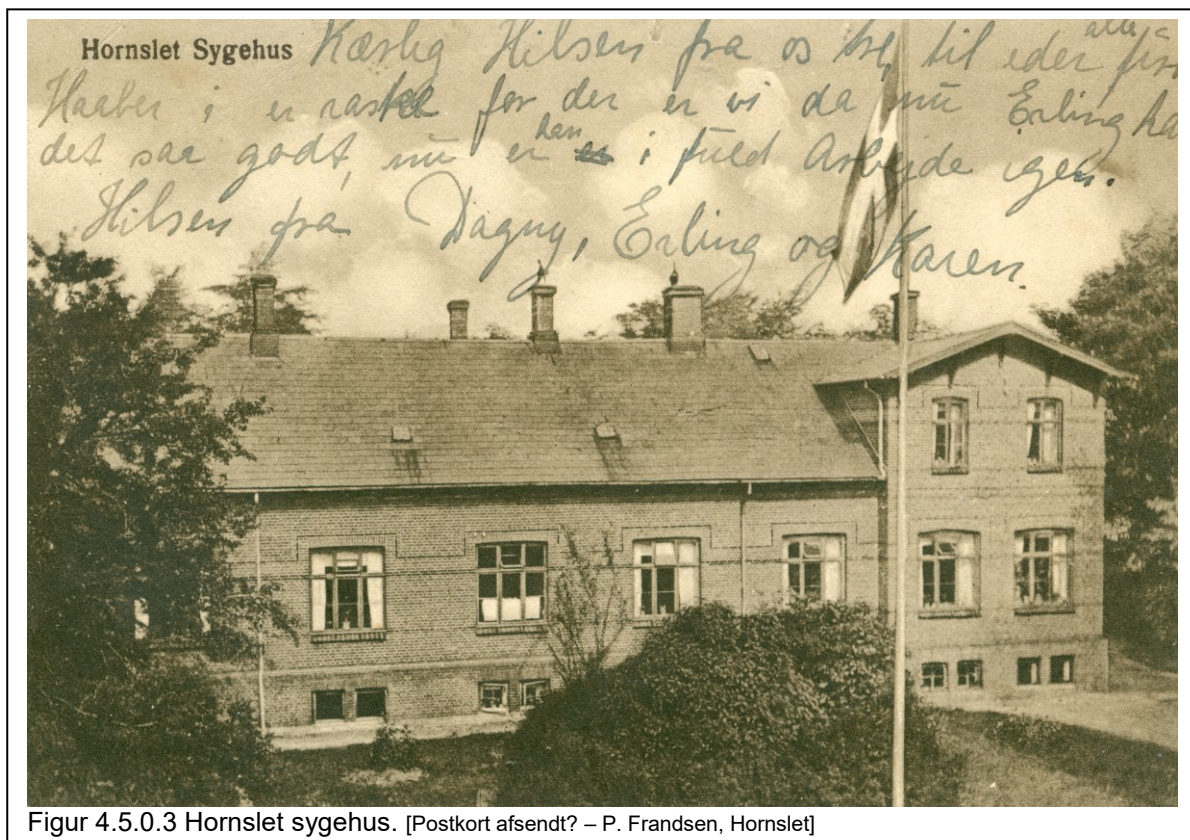 Hornslet Sygehus
Kærlig Hilsen fra os tre til eder alle
Haaber i er raske for der er vi da nu Erling ha
det saa godt, nu er han i fuld Arbejde igen.
Hilsen fra Dagny, Erling og Karen.
Figur 4.5.0.3 Hornslet sygehus. [Postkort afsendt? – P. Frandsen, Hornslet]